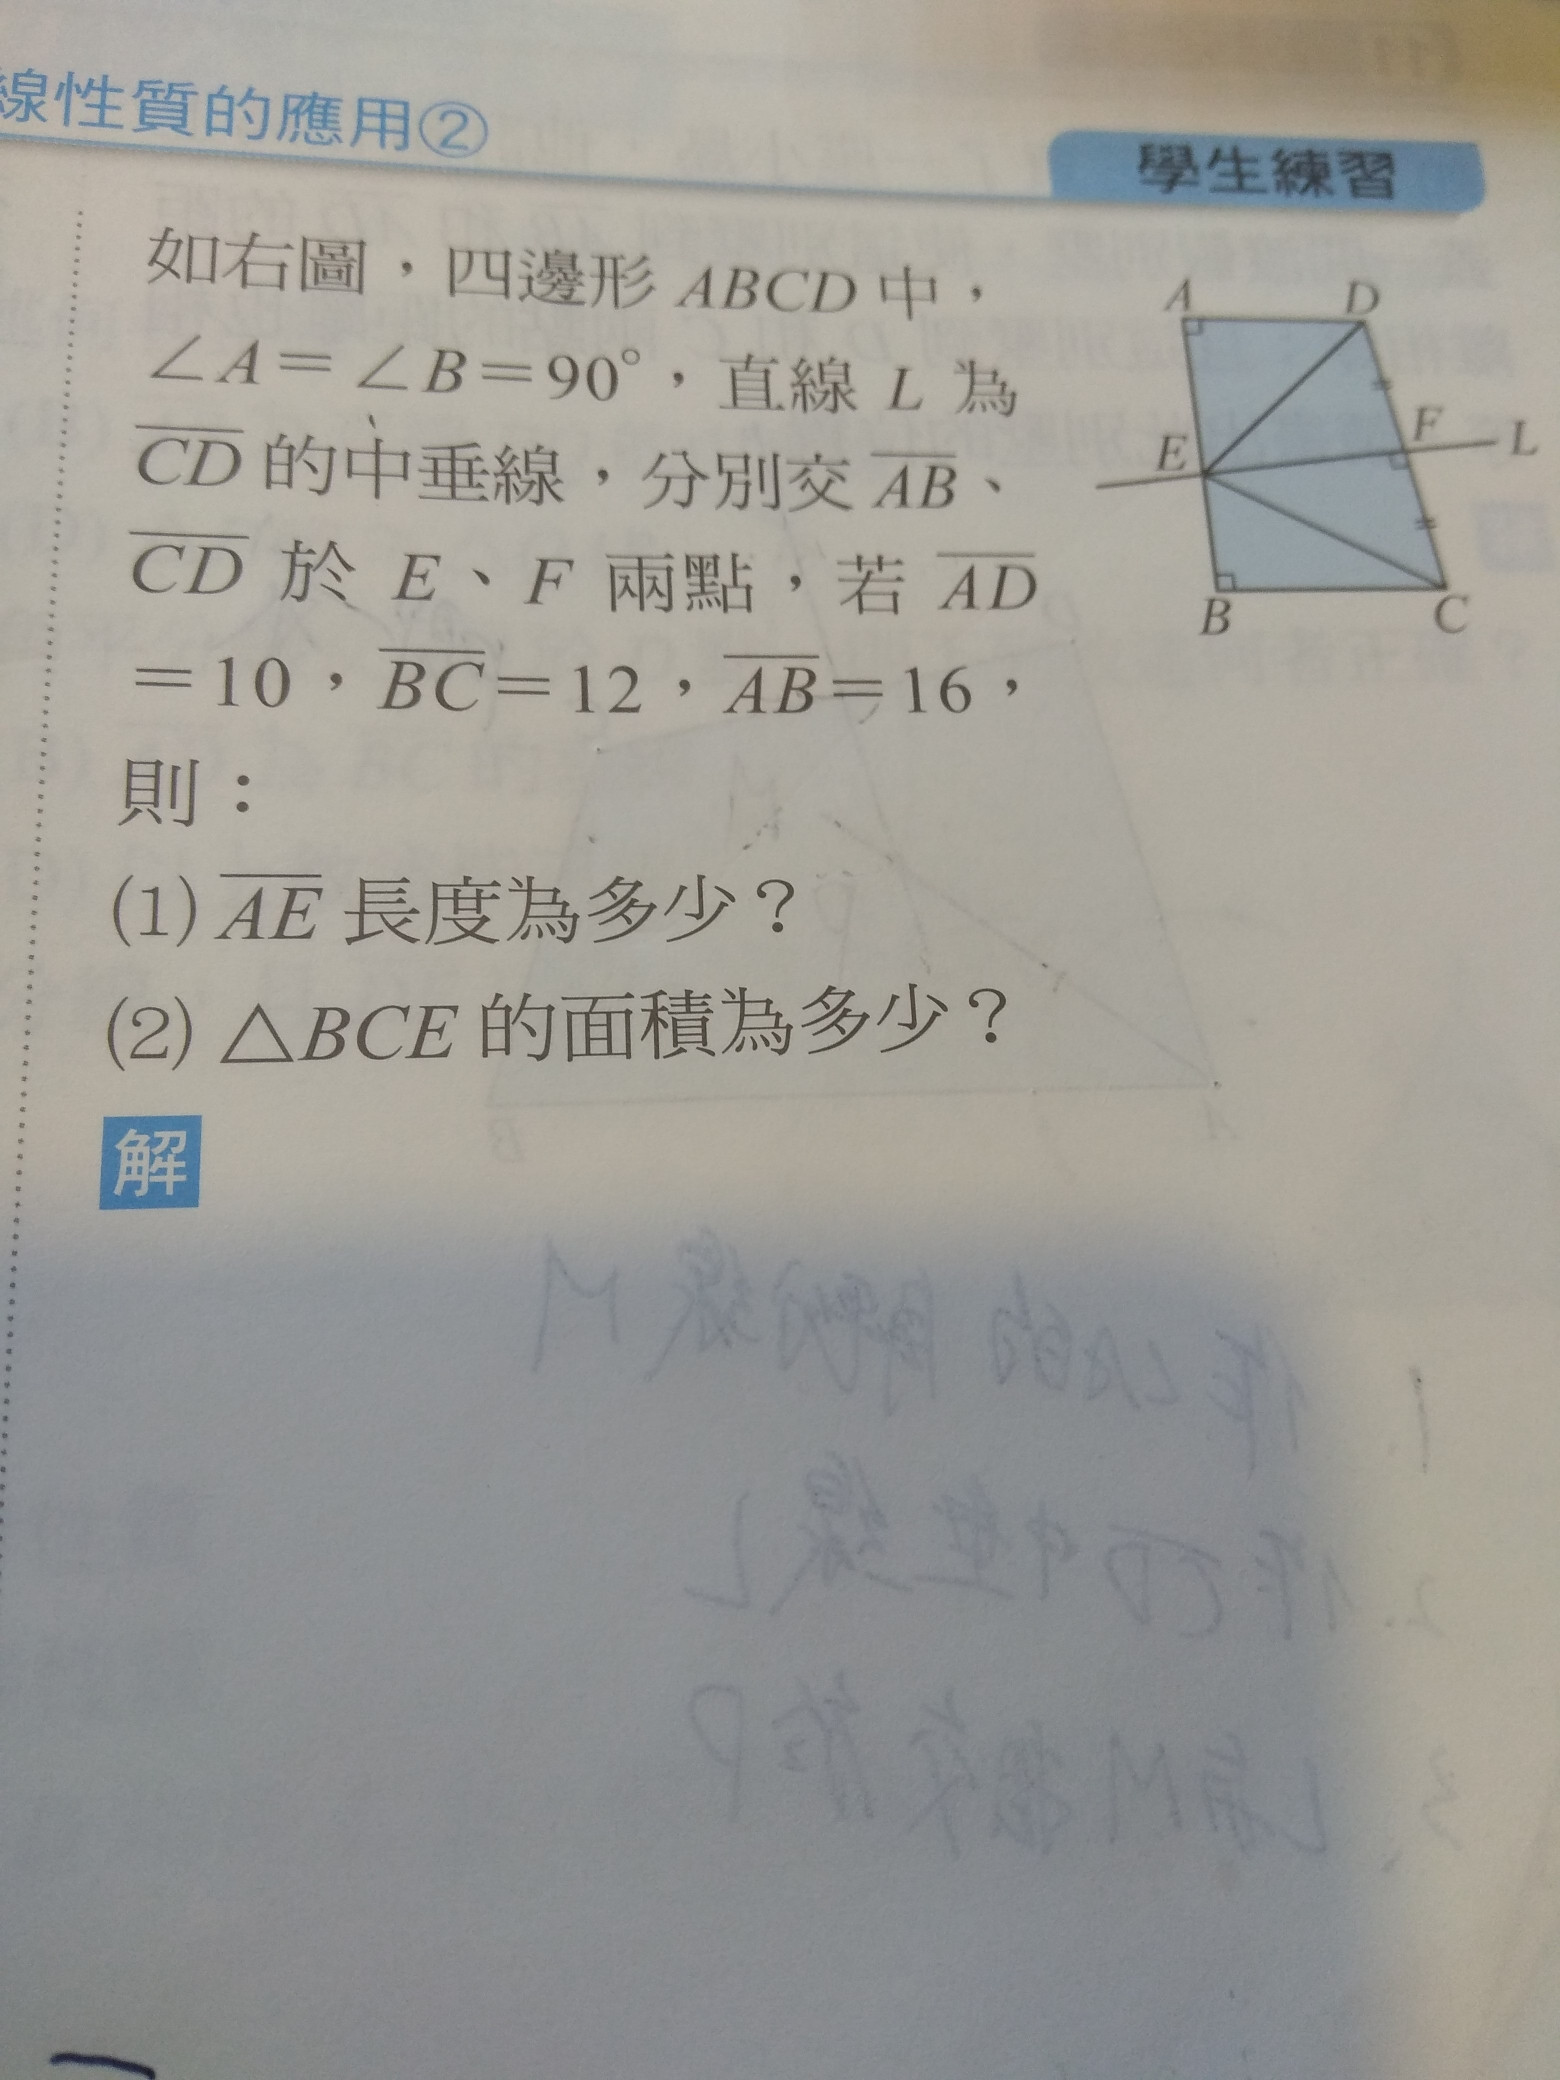 線性質的應用②
學生練習
如右圖，四邊形 ABCD 中，
∠A＝∠B＝90°，直線 L 為
CD 的中垂線，分別交 AB、
CD 於 E、F 兩點，若 AD
＝10，BC＝12，AB＝16，
則：
(1) AE 長度為多少？
(2) △BCE 的面積為多少？
A D
F L
E
B C
解